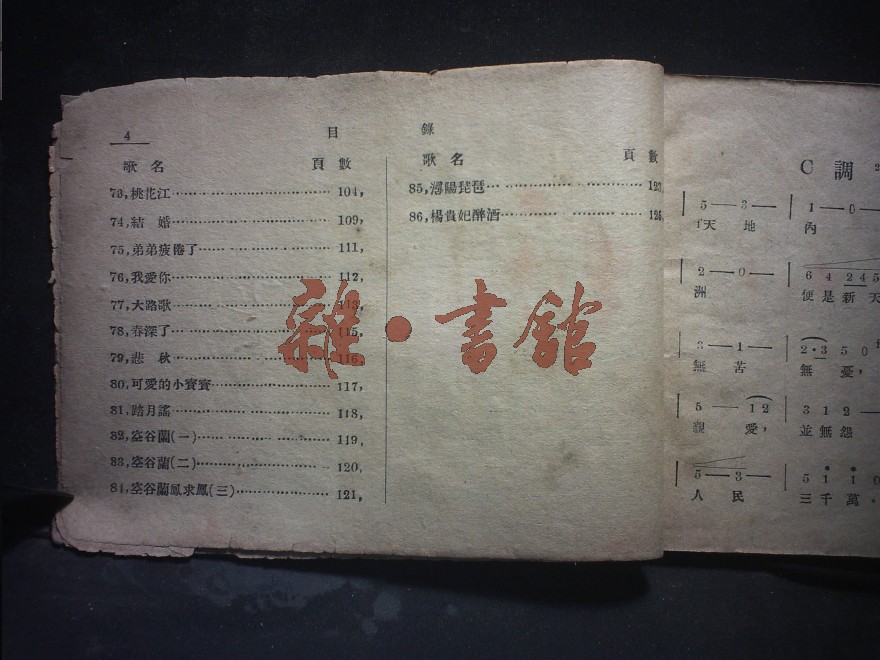 4 目 錄
歌 名 頁 數
73,桃花江 104,
74,結 婚 109,
75,弟弟疲倦了 111,
76,我愛你 112,
77,大路歌 113,
78,春深了 115,
79,悲 秋 116,
80,可愛的小寳寳 117,
81,踏月謠 118,
82,空谷蘭(一) 119,
83,空谷蘭(二) 120,
84,空谷蘭鳳求鳳(三) 121,
歌 名 頁 數
85,潯陽琵琶
86,楊貴妃醉酒
雜·書舘
C 調
5 — 3 — 1 — 0 —
天 地 內
2 — 0 — 6 4 2 4 5
洲 便 是 新 天
3 — 1 — 2 · 3 5 0
無 苦 無 憂,
5 — 1 2 3 1 2 —
親 愛, 並 無 怨
5 — 3 — 5 1 1 0
人 民 三 千 萬,